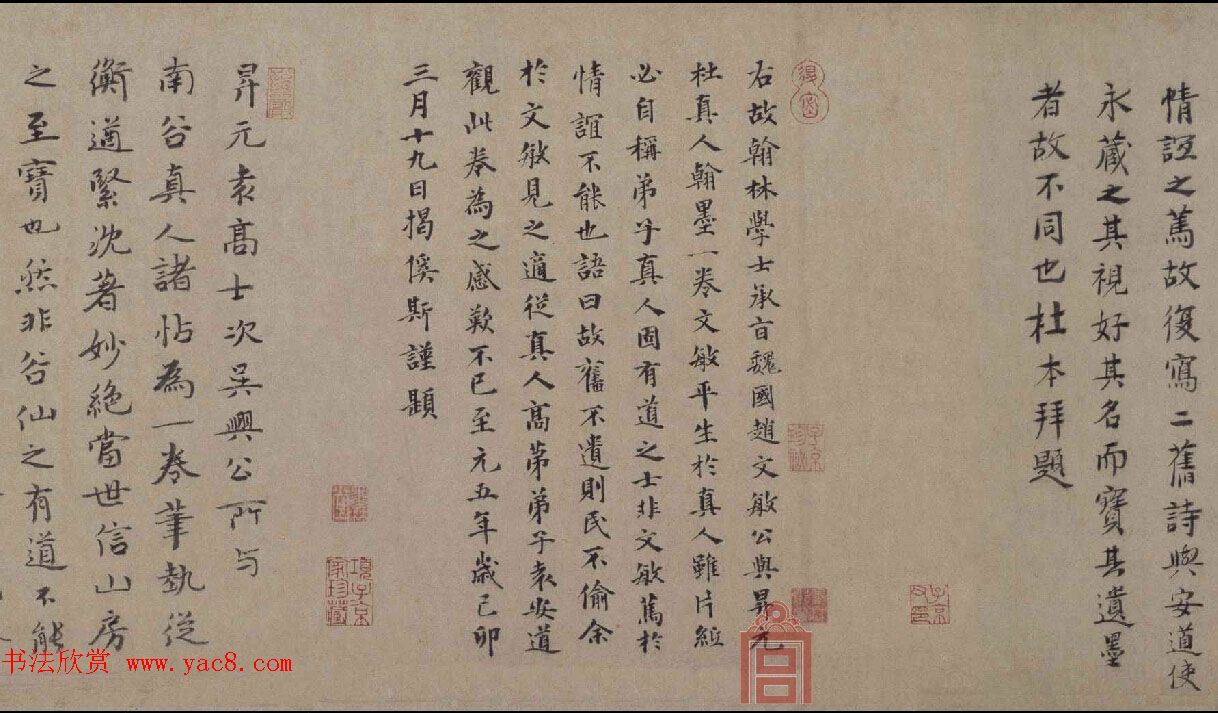 情誼之篤故復寫二舊詩與安道使
永藏之其視好其名而寶其遺墨
者故不同也杜本拜題
右故翰林學士承旨魏國趙文敏公與昇元
杜真人翰墨一卷文敏平生於真人雖片紙
必自稱弟子真人固有道之士非文敏篤於
情誼不能也語曰故舊不遺則民不偷余
於文敏見之適從真人高第弟子袁安道
觀此卷為之感歎不已至元五年歲己卯
三月十九日揭傒斯謹題
昇元袁高士次吳興公所与
南谷真人諸帖為一卷筆執從
衡遒緊沈著妙絕當世信山房
之至寶也然非谷仙之有道不能
项子京
家珍藏
子京
书法欣赏 www.yac8.com